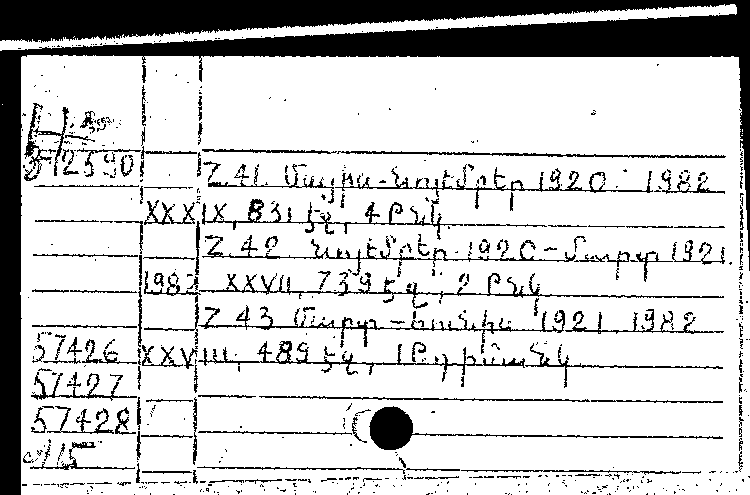 2590
Հ.41. Մայիս-նոյեմբեր 1920. 1982
XXXIX, 831 էջ, 4 Քնկ.
Հ.42. նոյեմբեր 1920 - մարտ 1921.
1982 XXVII, 739 էջ, 2 Քնկ
Հ 43 Մարտ - հունիս 1921. 1982
57426 XXVIII, 489 էջ, 1
57427
57428